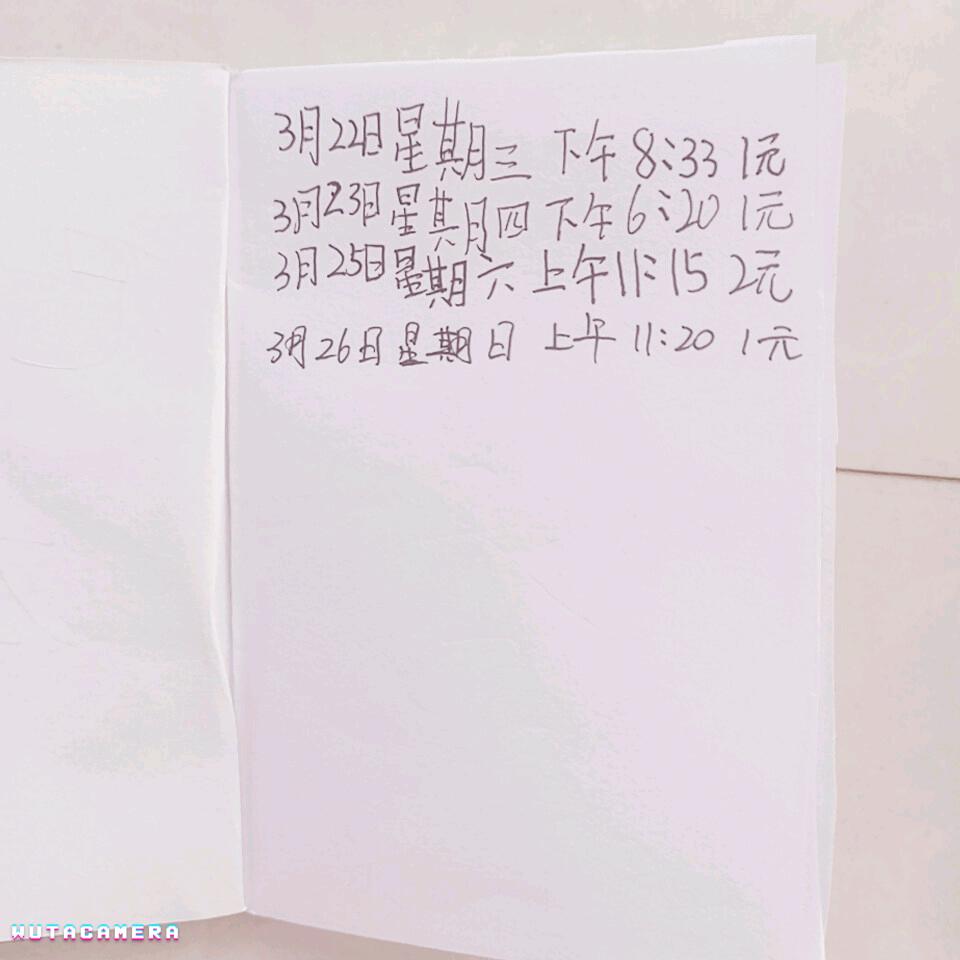 3月22日星期三 下午8:33 1元
3月23日星期四 下午6:20 1元
3月25日星期六 上午11:15 2元
3月26日星期日 上午11:20 1元
WUTACAMERA